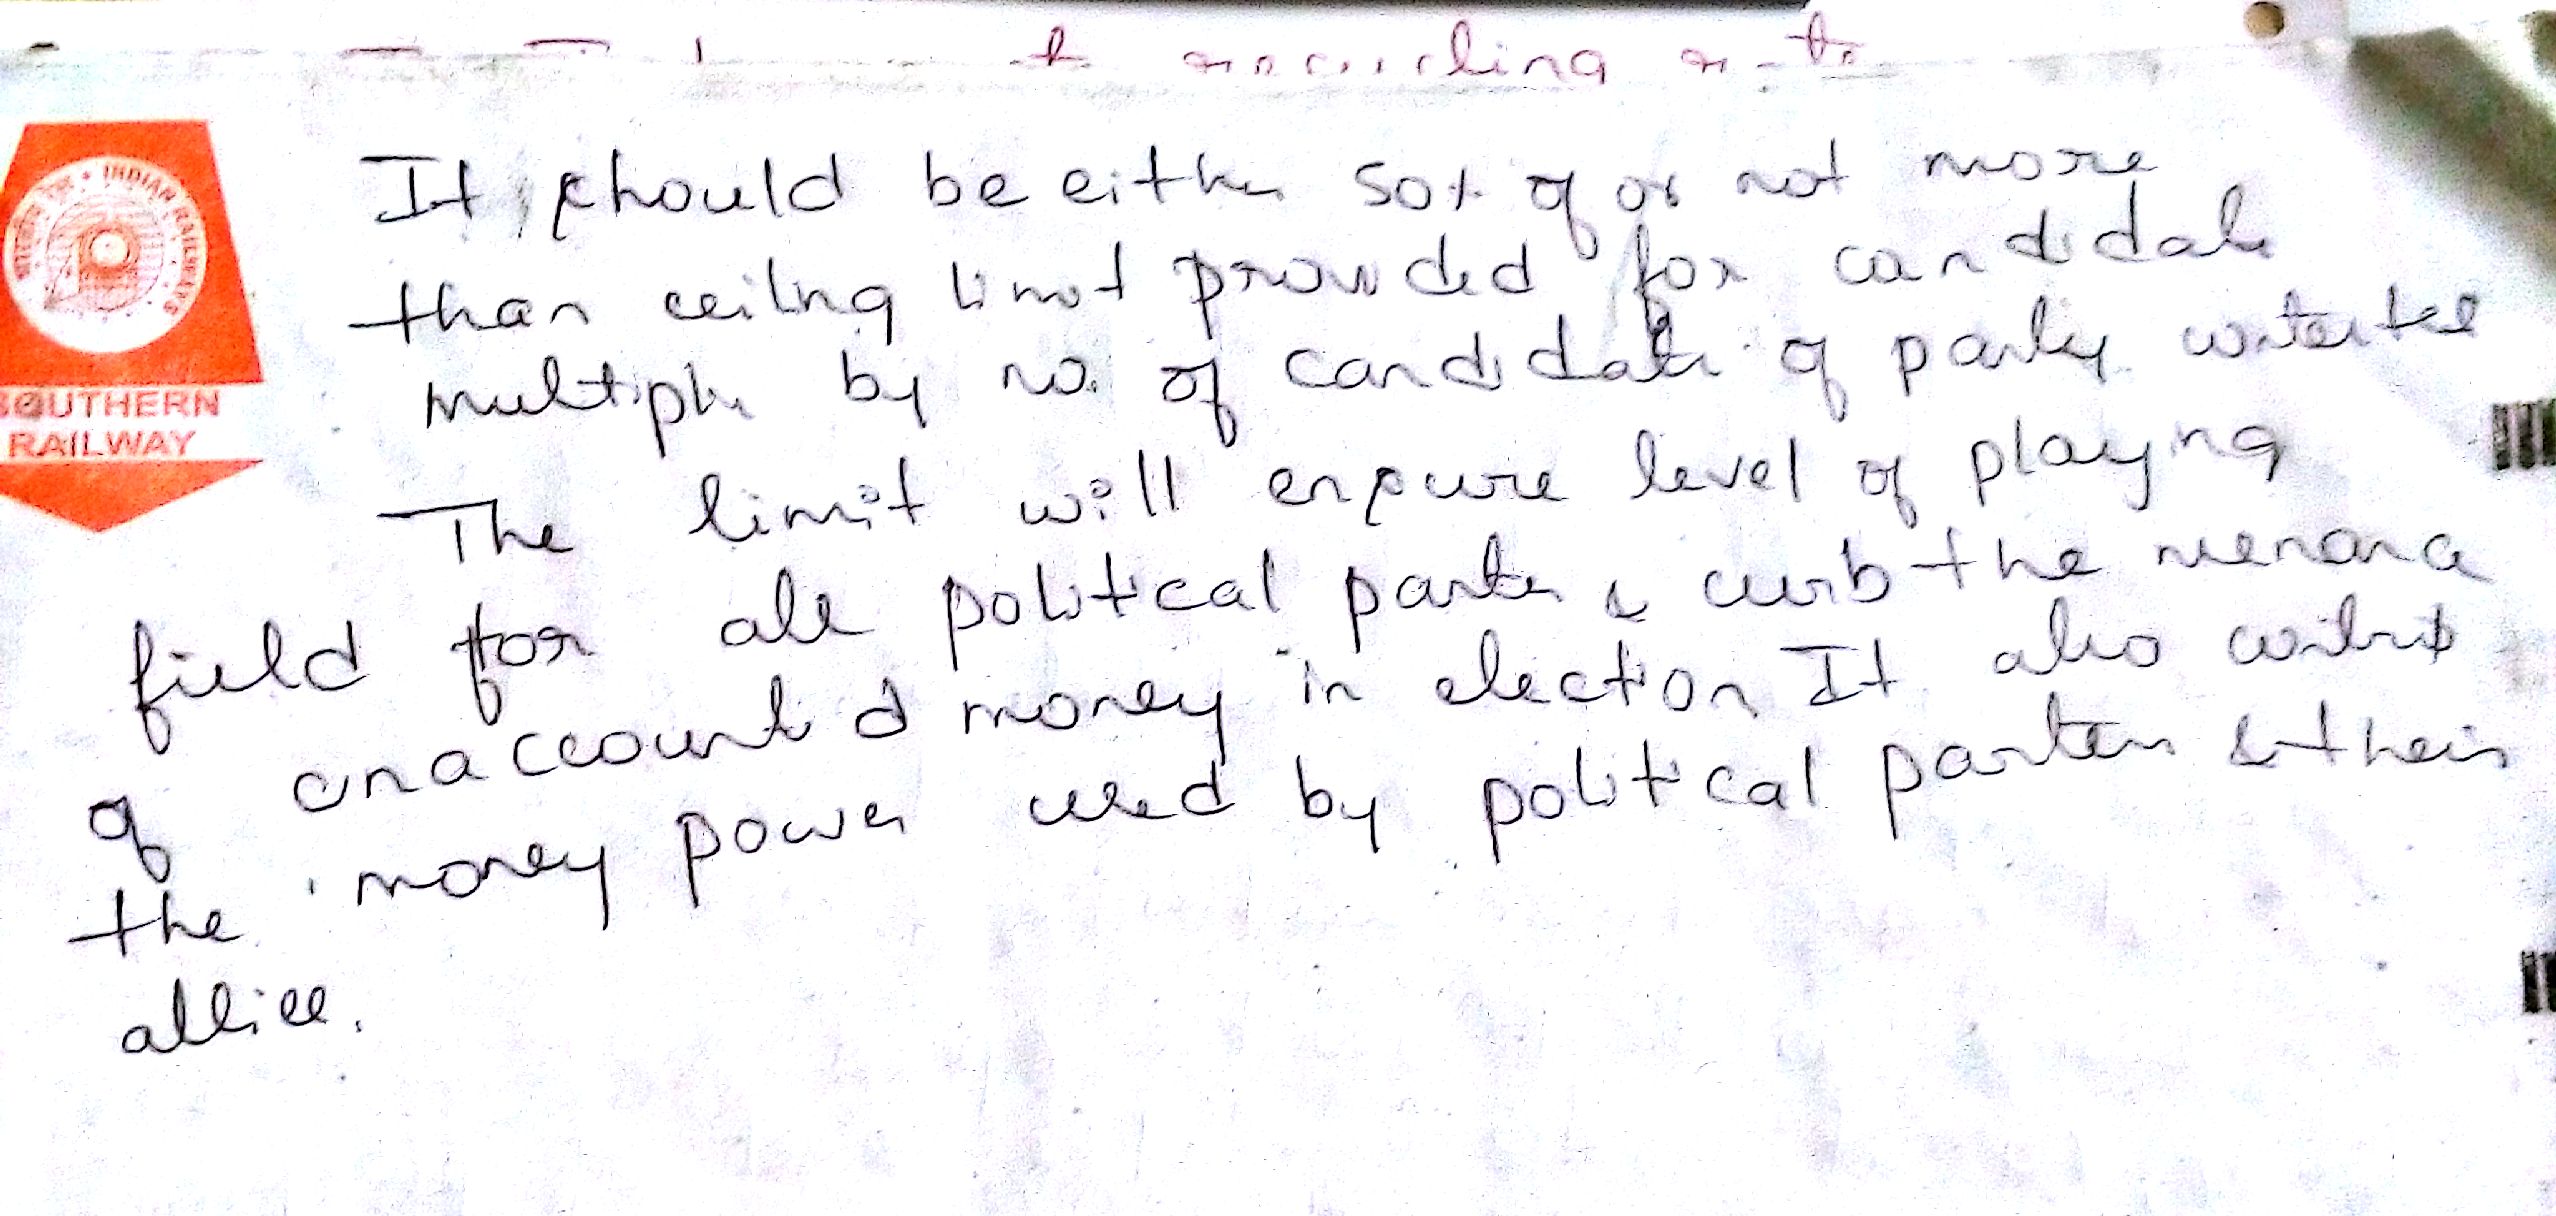 INDIAN RAILWAYS
SOUTHERN
RAILWAY
It should be either 50% of or not more
than ceiling limit provided for candidate
multiple by no. of candidate of party contested
The limit will ensure level of playing
field for all political parties & curb the
of unaccounted money in election It also
the money power used by political parties & their
allies.